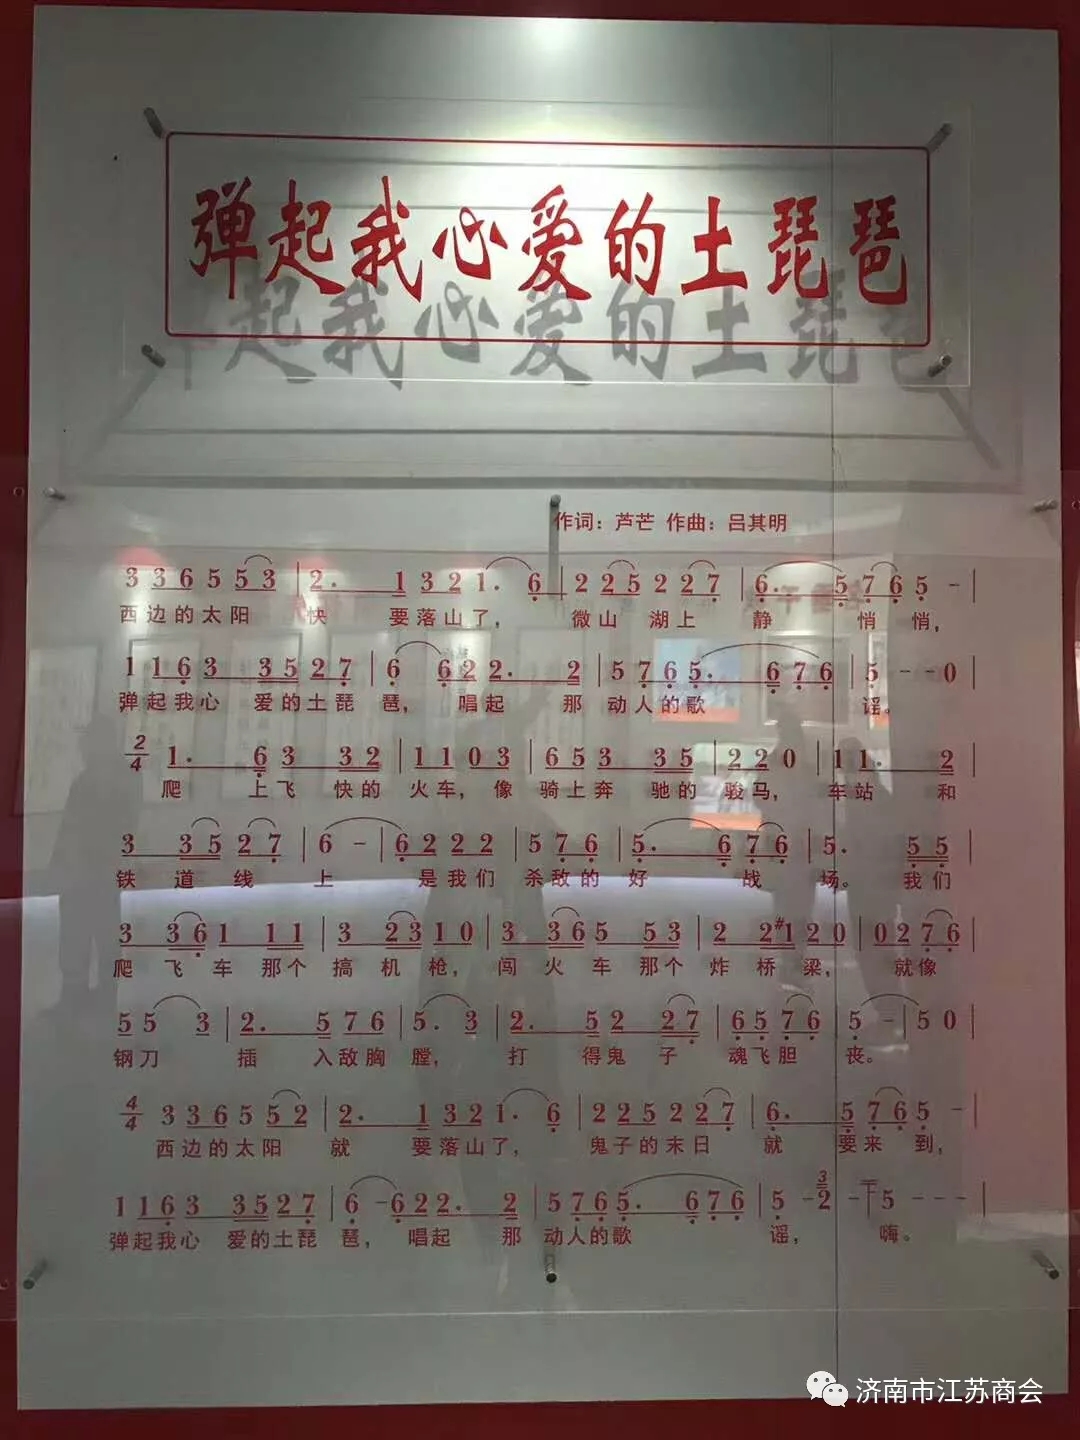 弹起我心爱的土琵琶
作词：芦芒 作曲：吕其明
3 3 6 5 5 5 3 | 2. 1 3 2 1. 6 | 2 2 5 2 2 7 | 6. 5 7 6 5 - |
西边的太阳 快 要落山了， 微山 湖上 静 悄 悄，
1 1 6 3 3 5 2 7 | 6 6 2 2. 2 | 5 7 6 5. 6 7 6 | 5 - - 0
弹起我心 爱的土琵 琶， 唱起 那 动人的歌 谣。
2/4 1. 6 3 3 2 | 1 1 0 3 | 6 5 3 3 5 | 2 2 0 | 1 1. 2 |
爬 上飞 快的 火车，像 骑上奔 驰的 骏马， 车站 和
3 3 5 2 7 | 6 - | 6 2 2 2 | 5 7 6 | 5. 6 7 6 | 5. 5 5 |
铁 道 线 上 是我们 杀敌的 好 战 场。 我们
3 3 6 1 1 1 | 3 2 3 1 0 | 3 3 6 5 5 3 | 2 2 #1 2 0 | 0 2 7 6 |
爬 飞 车 那个 搞 机 枪， 闯 火 车 那个 炸 桥 梁， 就像
5 5 3 | 2. 5 7 6 | 5. 3 | 2. 5 2 2 7 | 6 5 7 6 | 5 - | 5 0 |
钢刀 插 入敌胸 膛， 打 得鬼 子 魂飞胆 丧。
4/4 3 3 6 5 5 5 2 | 2. 1 3 2 1. 6 | 2 2 5 2 2 7 | 6. 5 7 6 5 - |
西边的太阳 就 要落山了， 鬼子的末日 就 要来 到，
1 1 6 3 3 5 2 7 | 6 - 6 2 2. 2 | 5 7 6 5. 6 7 6 | 5 - 3 2 - 5 - - - |
弹起我心 爱的土琵 琶， 唱起 那 动人的歌 谣， 嗨。
济南市江苏商会